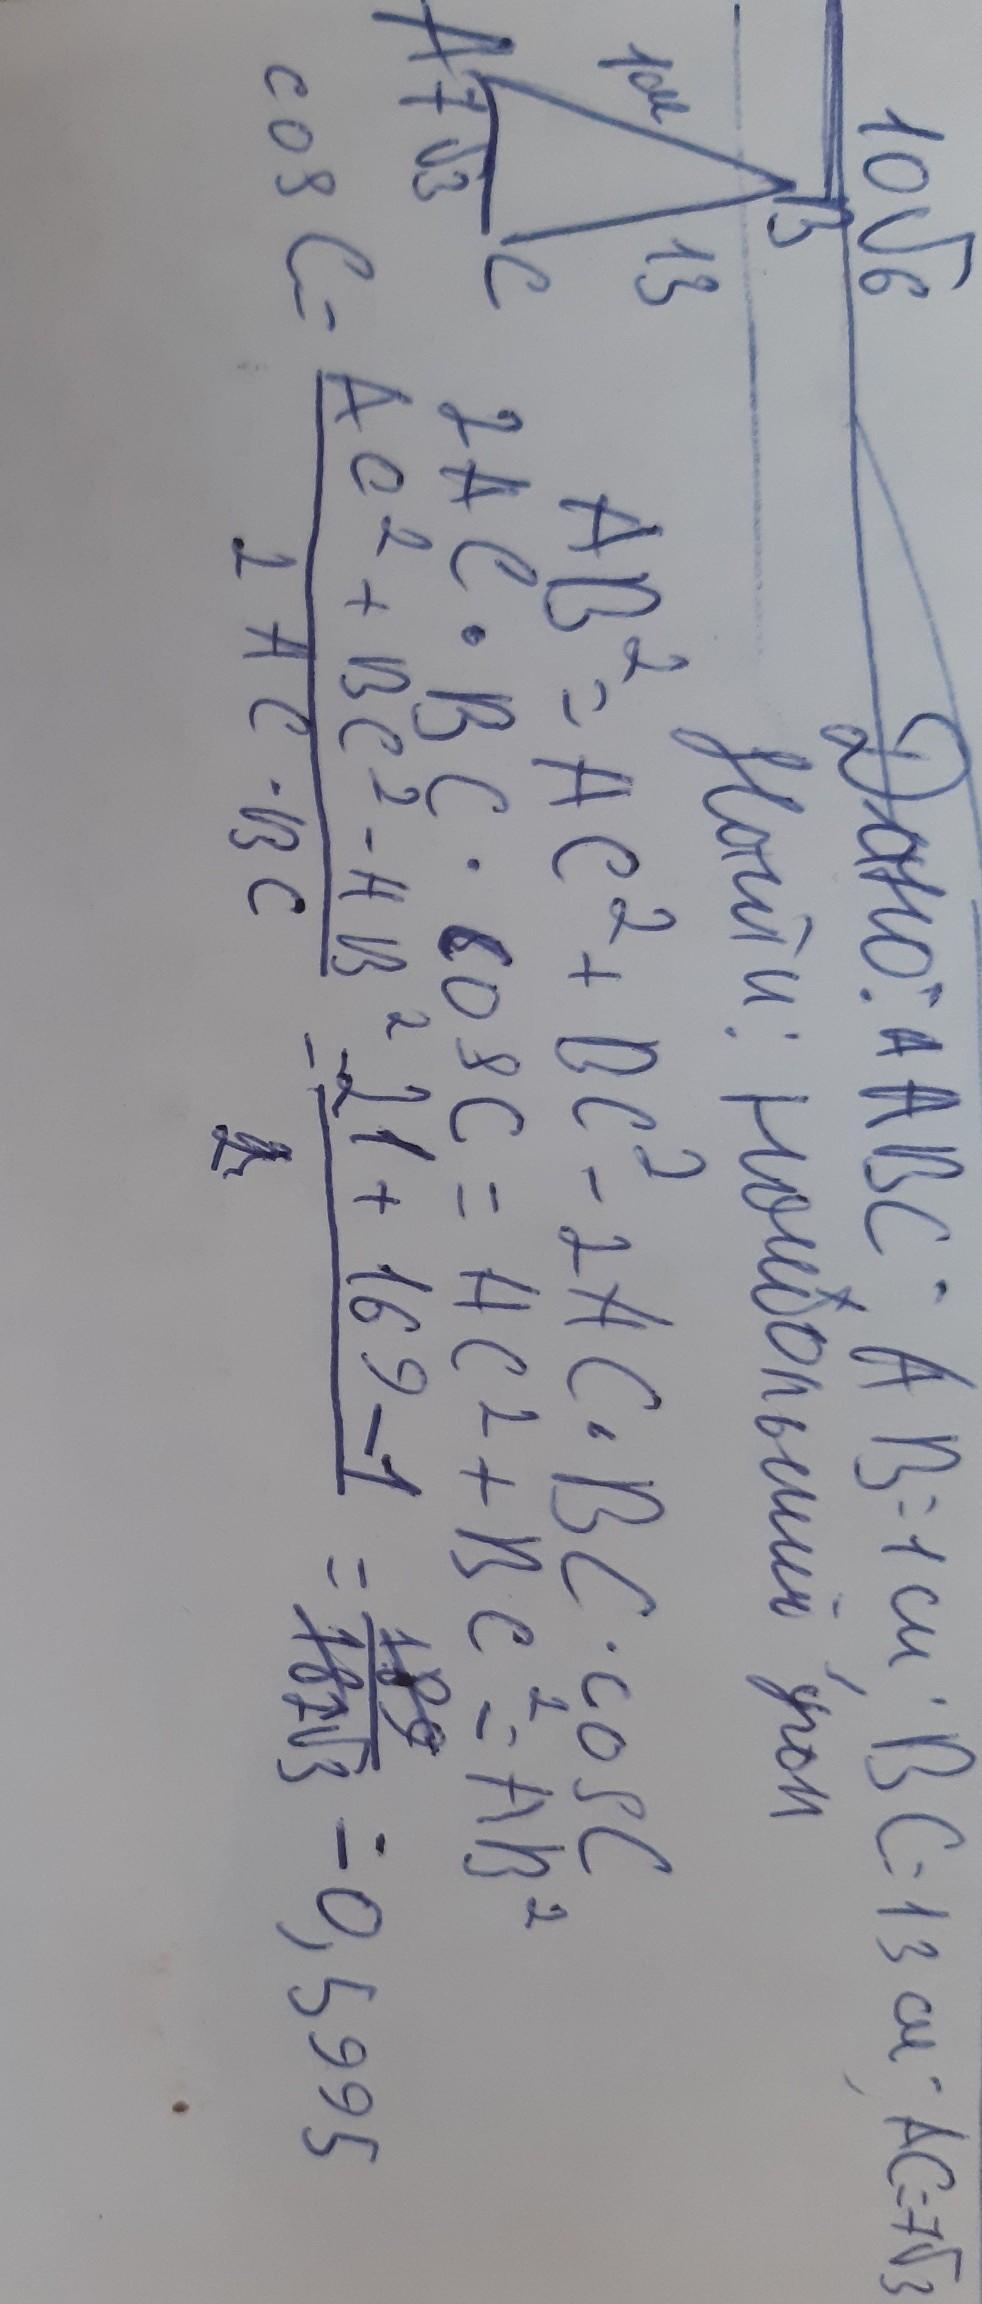 10√6
Дано: ΔABC; AB=1см; BC=13см; AC=7√3
Найти: Наибольший угол
B
1см
13
A
7√3
C
AB² = AC² + BC² - 2AC · BC · cosC
2AC · BC · cosC = AC² + BC² - AB²
cos C = AC² + BC² - AB² / 2AC · BC = 21 + 169 - 1 / = 189 / = 0,5995